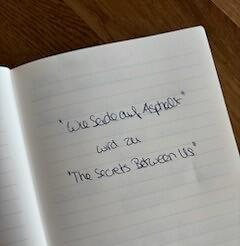 "Wie Seide auf Asphalt"
wird zu
"The Secrets Between Us"